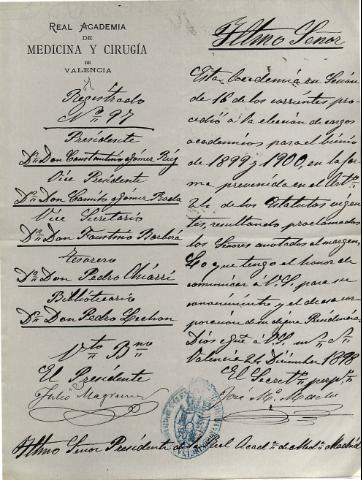 REAL ACADEMIA
DE
MEDICINA Y CIRUGÍA
DE
VALENCIA
Registrado
Nº 97
Presidente
Dn. Don Constantino Gómez Reig
Vice Presidente
Dn. Don Camilo Gómez
Vice Secretario
Dn. Don Faustino Barberá
Tesorero
Dn. Don Pedro Chiarri
Bibliotecario
Dn. Don Pedro Lechon
Vto Bno
El Presidente
Julio Magraner
Iltmo Señor
Esta Academia en Sesión
de 16 de los corrientes pro
cedió á la elección de cargos
académicos para el bienio
de 1899 y 1900, en la for
ma prevenida en el Arto
24 de los Estatutos vigen
tes, resultando proclamados
los Señores anotados al margen,
Lo que tengo el honor de
comunicar á V.S. para su
conocimiento y el de esa cor
poración de su digna Presidencia
Dios gue á V.S. ms as
Valencia 24 Diciembre 1898
El Secreto perpo
José M. Machi
Iltmo Senor Presidente de la Real Acada de Medna Madrid